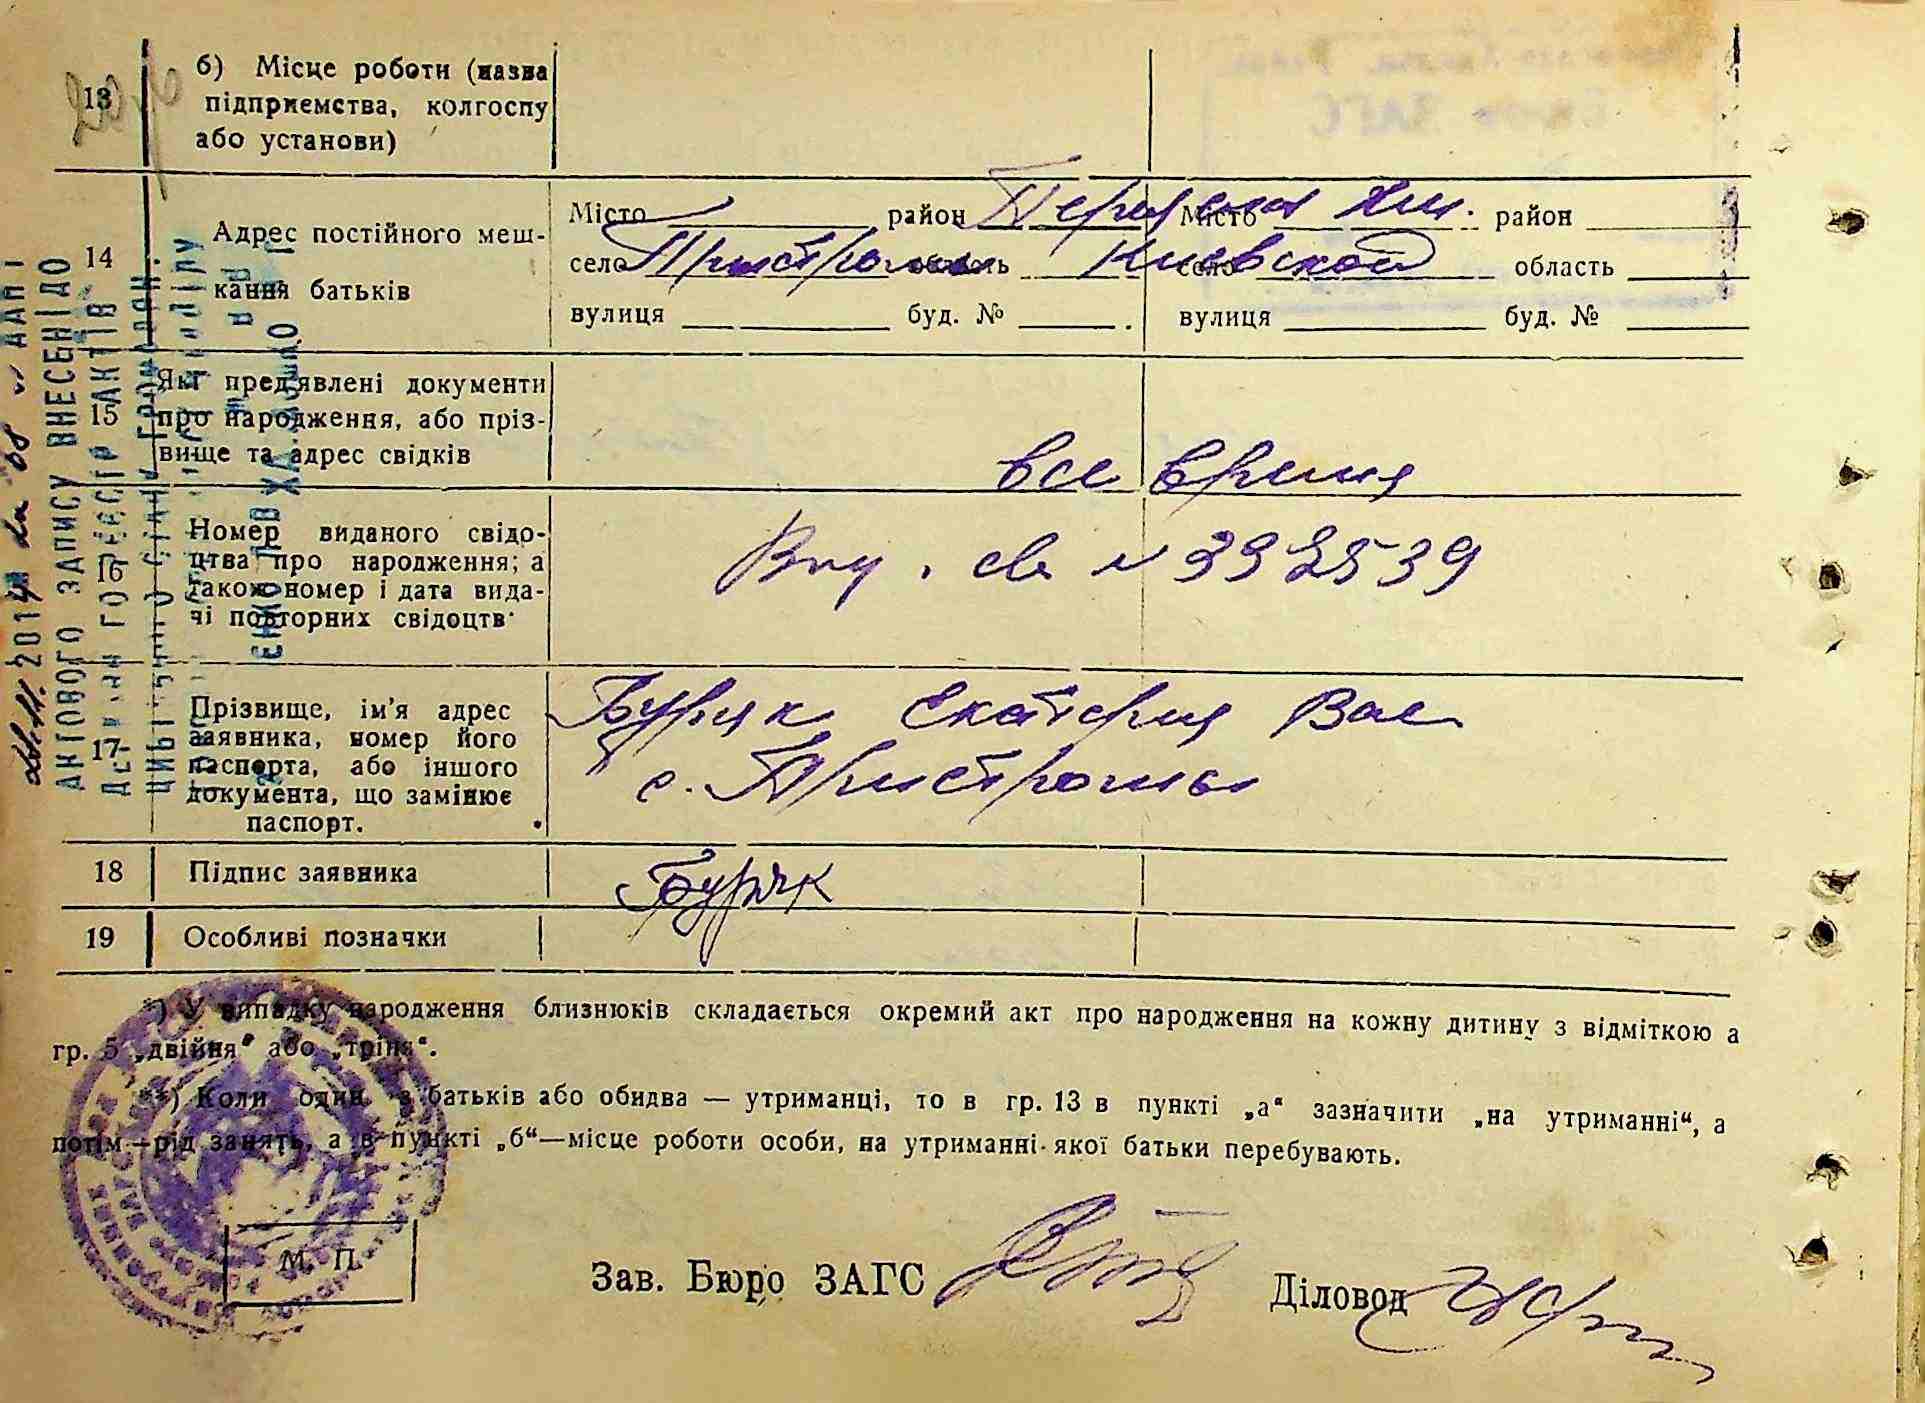 13
б) Місце роботи (назва
підприємства, колгоспу
або установи)
14
Адрес постійного меш-
кання батьків
Місто район
село Пристромы область Киевской
вулиця буд. №
Місто район
село область
вулиця буд. №
15
Які пред'явлені документи
про народження, або пріз-
вище та адрес свідків
все время
16
Номер виданого свідо-
цтва про народження; а
також номер і дата вида-
чі повторних свідоцтв
св № 392539
17
Прізвище, ім'я адрес
заявника, номер його
паспорта, або іншого
документа, що замінює
паспорт.
Буряк Екатерия Вас
с. Пристромы
18 Підпис заявника Буряк
19 Особливі позначки
*) У випадку народження близнюків складається окремий акт про народження на кожну дитину з відміткою а
гр. 5 „двійня" або „трійня".
**) Коли один з батьків або обидва — утриманці, то в гр. 13 в пункті „а" зазначити „на утриманні", а
потім—рід занять, а в пункті „б"—місце роботи особи, на утриманні якої батьки перебувають.
М. П.
Зав. Бюро ЗАГС
Діловод
АКТОВОГО ЗАПИСУ ВНЕСЕНІ ДО